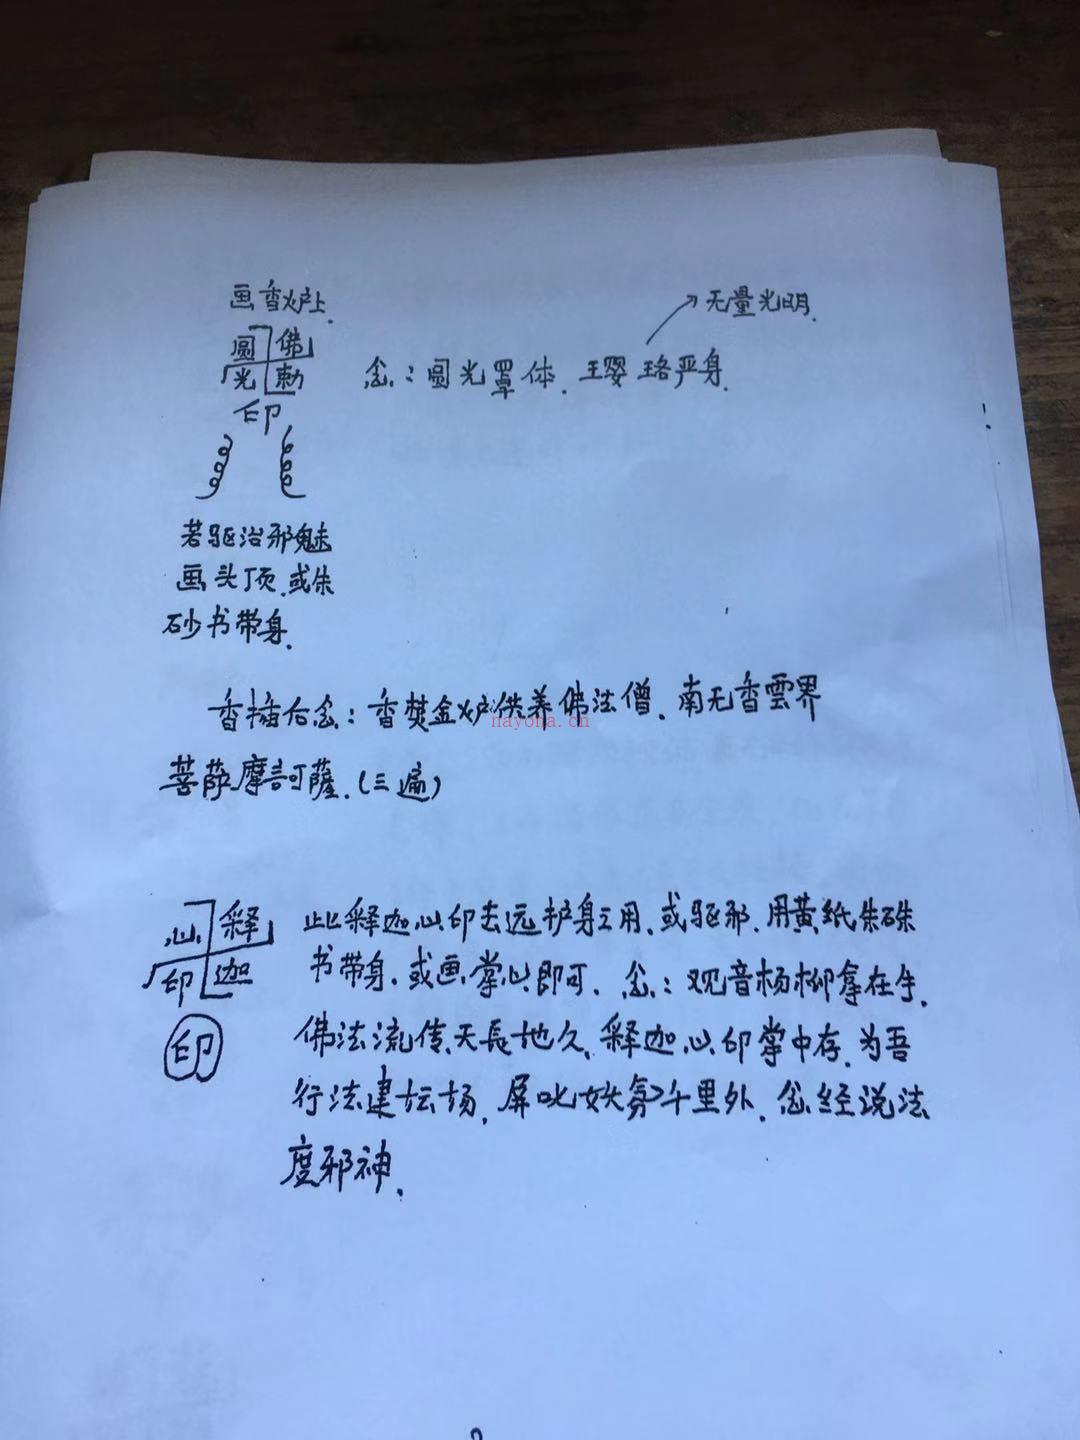 画香炉上.
无量光明.
圆 佛
光 勅
印
念：圆光罩体.璎珞严身.
若驱治邪魅
画头顶.或朱
砂书带身.
香插后念：香焚金炉供养佛法僧.南无香雲界
nayona.cn
菩萨摩訶薩.(三遍)
心 释
印 迦
印
此释迦心印去远护身之用.或驱邪.用黄纸朱砵
书带身.或画掌心即可.念：观音杨柳拿在手.
佛法流传天長地久.释迦心印掌中存.为吾
行法建坛场.屏叱妖氛千里外.念经说法
度邪神.